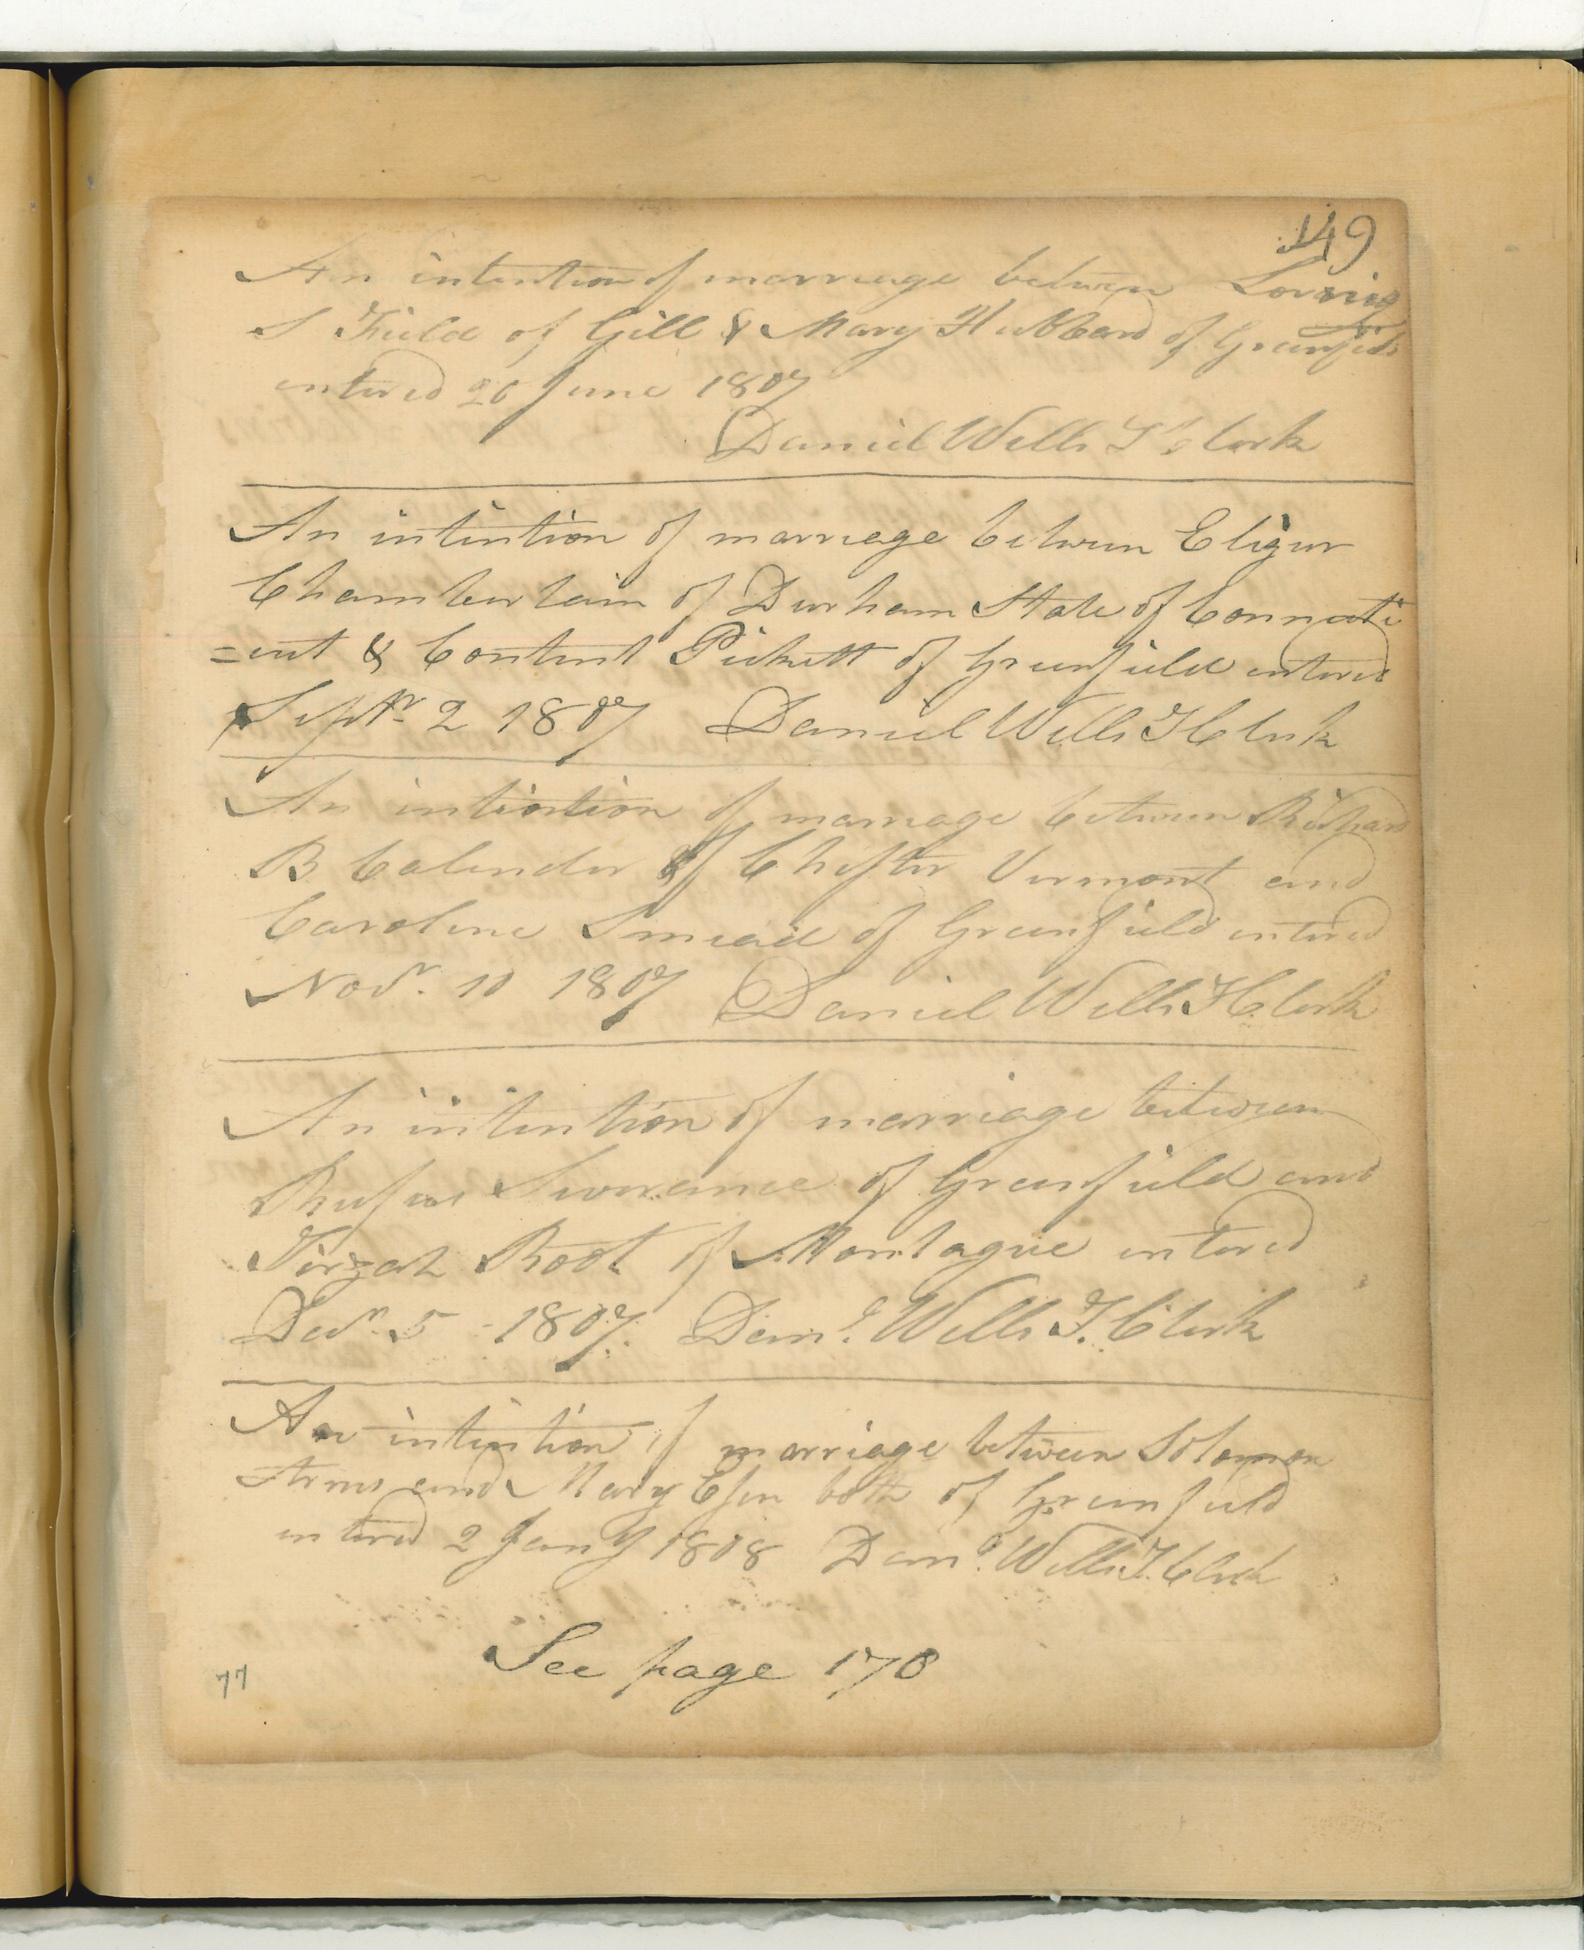 149
An intention of marriage between Lorring
S Field of Gill & Mary Hubbard of Greenfield
entered 20 June 1807
Daniel Wells T Clerk
An intention of marriage between Eligur
Chamberlain of Durham State of Connecti
=cut & Content Pickett of Greenfield entered
Septr. 2 1807 Daniel Wells T Clerk
An intention of marriage between Richard
B Calender of Chester Vermont and
Caroline Smead of Greenfield entered
Novr. 10 1807 Daniel Wells T Clerk
An intention of marriage between
Rufus Severance of Greenfield and
Tirzah Root of Montague entered
Decr. 5 - 1807. Danl. Wells T. Clerk
An intention of marriage between Solomon
Arms and Mary both of Greenfield
entered 2 Jany 1808 Danl. Wells T. Clerk
See page 178
77